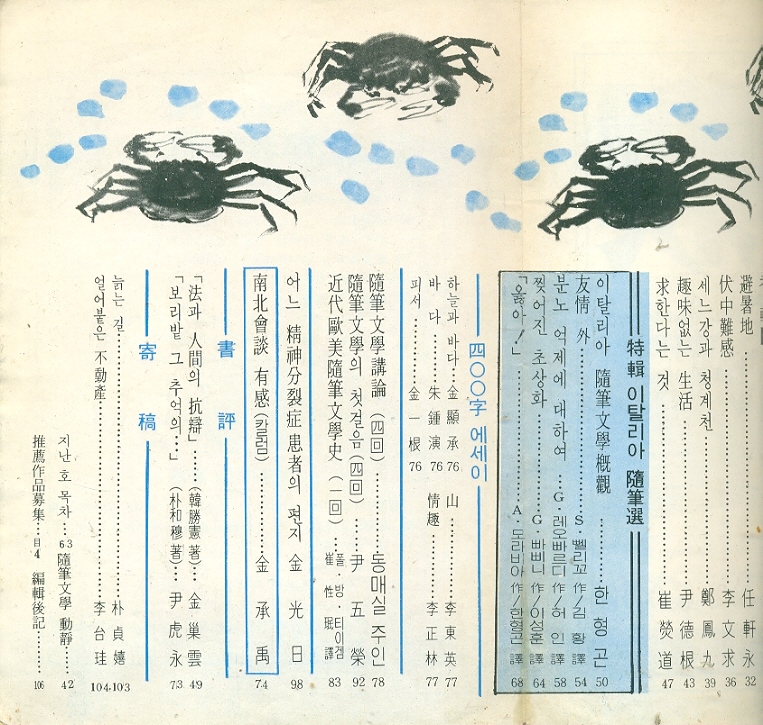 避暑地……任軒永 32
伏中難感……李文求 36
세느강과 청계천……鄭鳳九 39
趣味없는 生活……尹德根 43
求한다는 것……崔熒道 47
特輯 이탈리아 隨筆選
이탈리아 隨筆文學概觀……한형곤 50
友情 外……S·펠리꼬作/김 황譯 54
분노 억제에 대하여……G·레오빠르디作/허 인譯 58
찢어진 초상화……G·빠삐니作/이성훈譯 64
「옳아!」……A·모라비아作/한형곤譯 68
四〇〇字 에세이
하늘과 바다……金顯承 76
山……李東英 77
바다……朱鍾演 76
情趣……李正林 77
피서……金一根 76
隨筆文學講論(四回)……동매실 주인 78
隨筆文學의 첫걸음(四回)……尹五榮 92
近代歐美隨筆文學史(一回)……폴 방·티이겜 崔性珉譯 83
어느 精神分裂症 患者의 편지 金光日 98
南北會談 有感(칼럼)……金承禹 74
書評
「法과 人間의 抗辯」……(韓勝憲著)……金巢雲 49
「보리밭 그 추억의…」……(朴和穆著)……尹虎永 73
寄稿
늙는 길……朴貞嬉 103
얼어붙은 不動產……李台珪 104
지난 호 목차…63
隨筆文學 動靜……42
推薦作品募集…目4
編輯後記……106